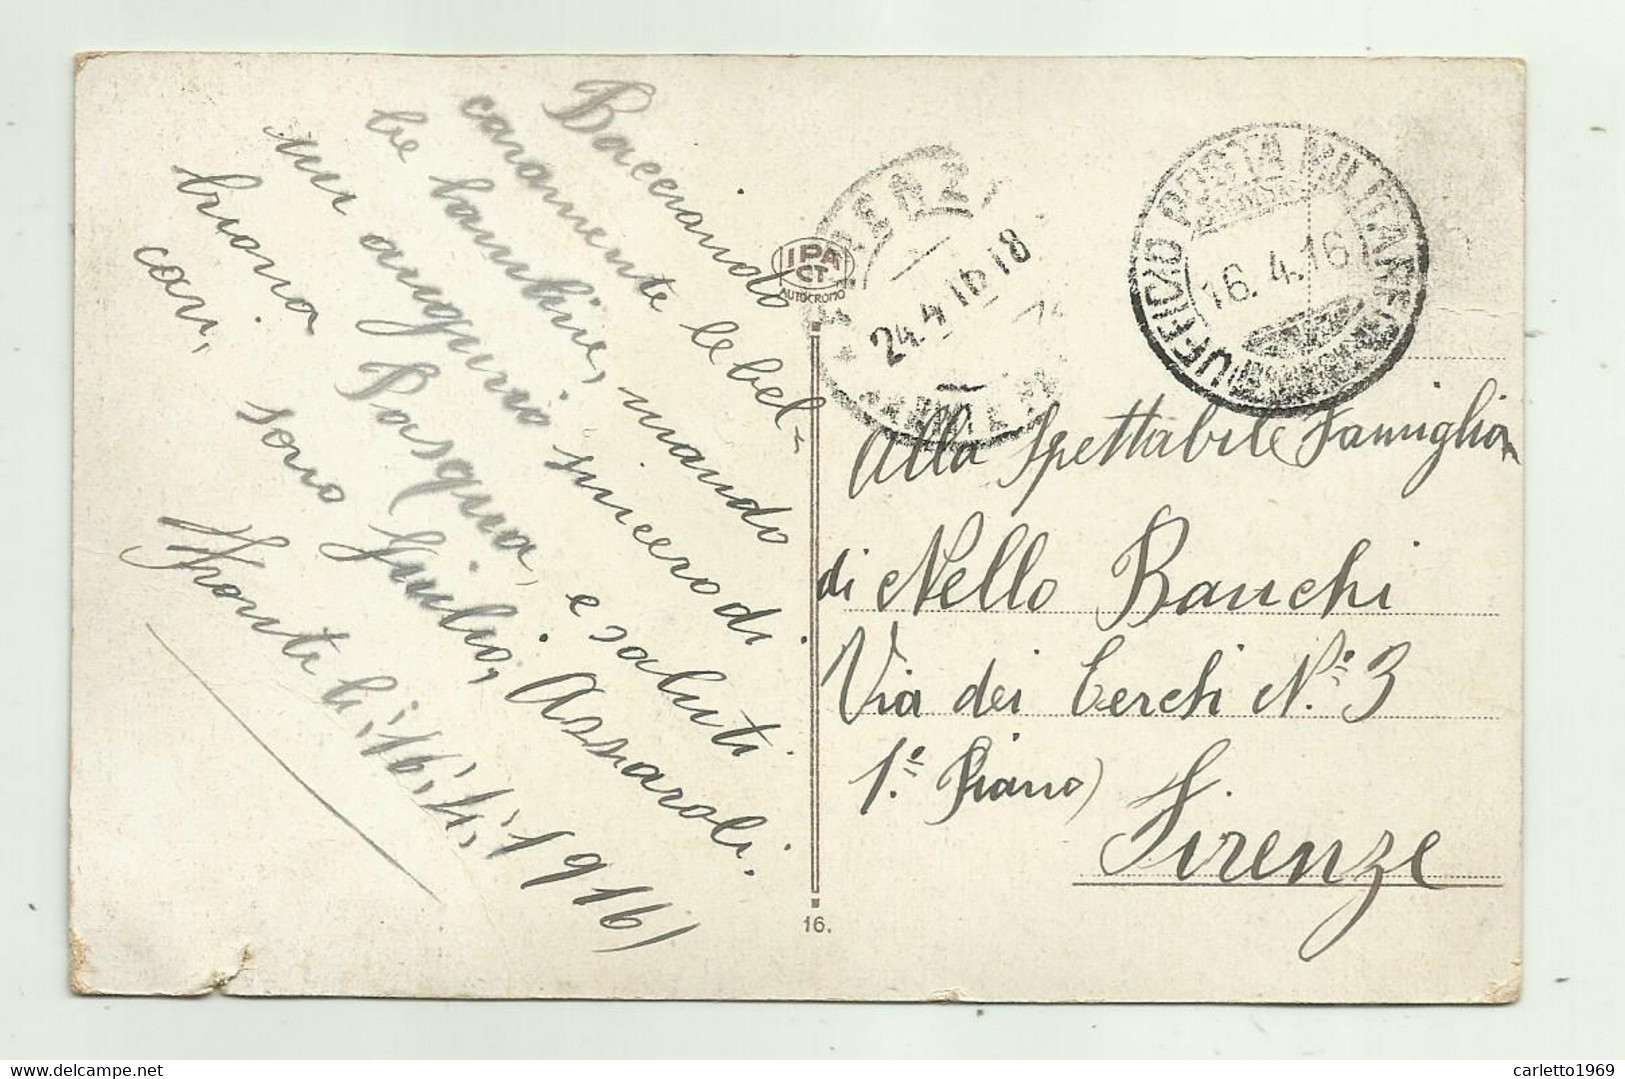 Bacciando
caramente le bel-
le bambine, mando
un augurio sincero di
buona Pasqua, e saluti
cari, sono Giulio, Assaroli.
Fronte li; 16; 4; 1916)
IPA
CT
AUTOCROMO
16.
24.4.16 18
UFFICIO POSTA MILITARE
16.4.16
Alla Spettabile Famiglia
di Nello Banchi
Via dei Cerchi N.º 3
1.º Piano)
Firenze
delcampe.net
carletto1969